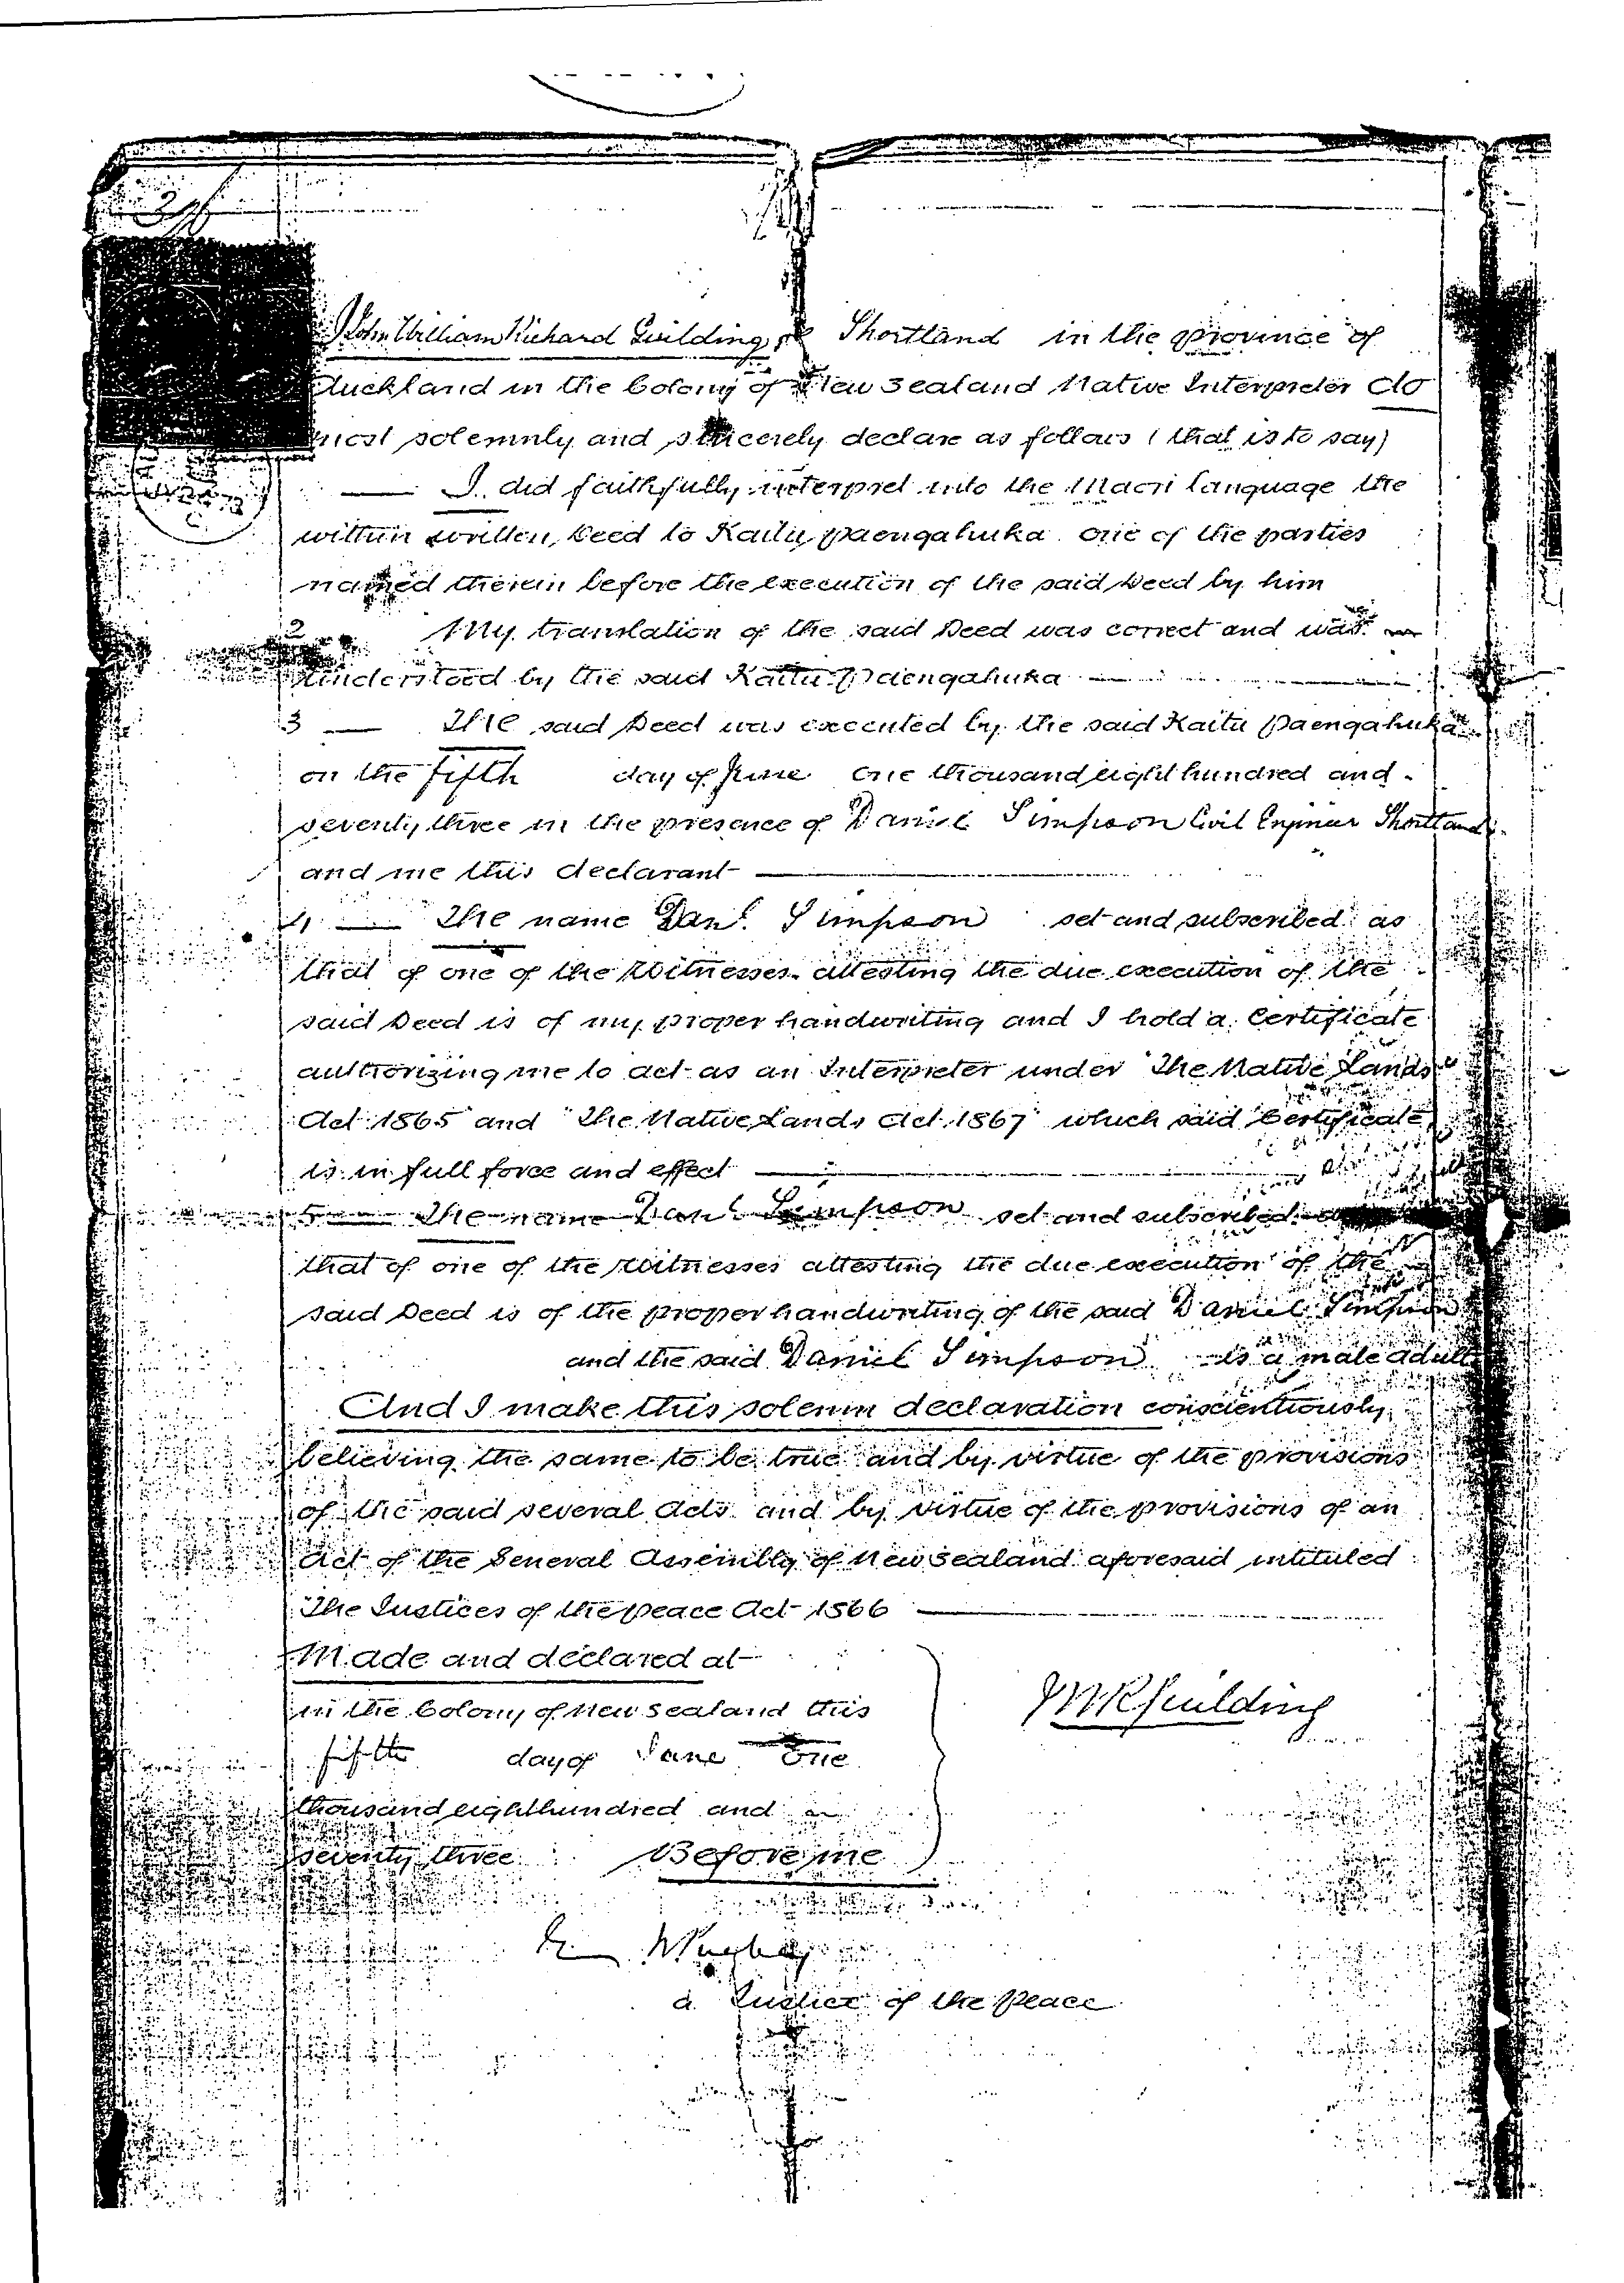 I John William Richard Guilding of Shortland in the province of
Auckland in the Colony of New Zealand Native Interpreter do
most solemnly and sincerely declare as follows (that is to say)
I did faithfully interpret into the Maori language the
within written Deed to Kaitu Paengahuka one of the parties
named therein before the execution of the said Deed by him
2 My translation of the said Deed was correct and was
understood by the said Kaitu Paengahuka
3 The said Deed was executed by the said Kaitu Paengahuka
on the fifth day of June One thousand eight hundred and
seventy three in the presence of Daniel Simpson Civil Engineer Shortland
and me this declarant
4 The name Danl. Simpson set and subscribed as
that of one of the Witnesses attesting the due execution of the
said Deed is of my proper handwriting and I hold a Certificate
authorizing me to act as an Interpreter under "The Native Lands
Act 1865" and "The Native Lands Act 1867" which said Certificate
is in full force and effect
5 The name Danl Simpson set and subscribed as
that of one of the Witnesses attesting the due execution of the
said Deed is of the proper handwriting of the said Daniel Simpson
and the said Daniel Simpson is a male adult
And I make this solemn declaration conscientiously
believing the same to be true and by virtue of the provisions
of the said several Acts and by virtue of the provisions of an
Act of the General Assembly of New Zealand aforesaid intituled
The Justices of the Peace Act 1866
Made and declared at
in the Colony of New Zealand this
fifth day of June One
thousand eight hundred and
seventy three Before me
JWRGuilding
a Justice of the Peace